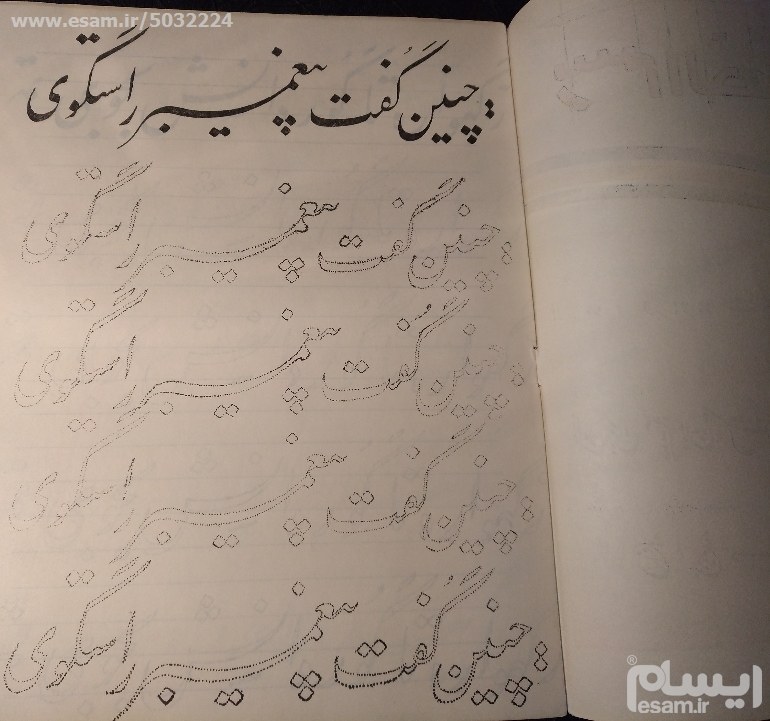 www.esam.ir/5032224
چنین گفت پیغمبر راستگوی
چنین گفت پیغمبر راستگوی
چنین گفت پیغمبر راستگوی
چنین گفت پیغمبر راستگوی
چنین گفت پیغمبر راستگوی
ایسام®
esam.ir